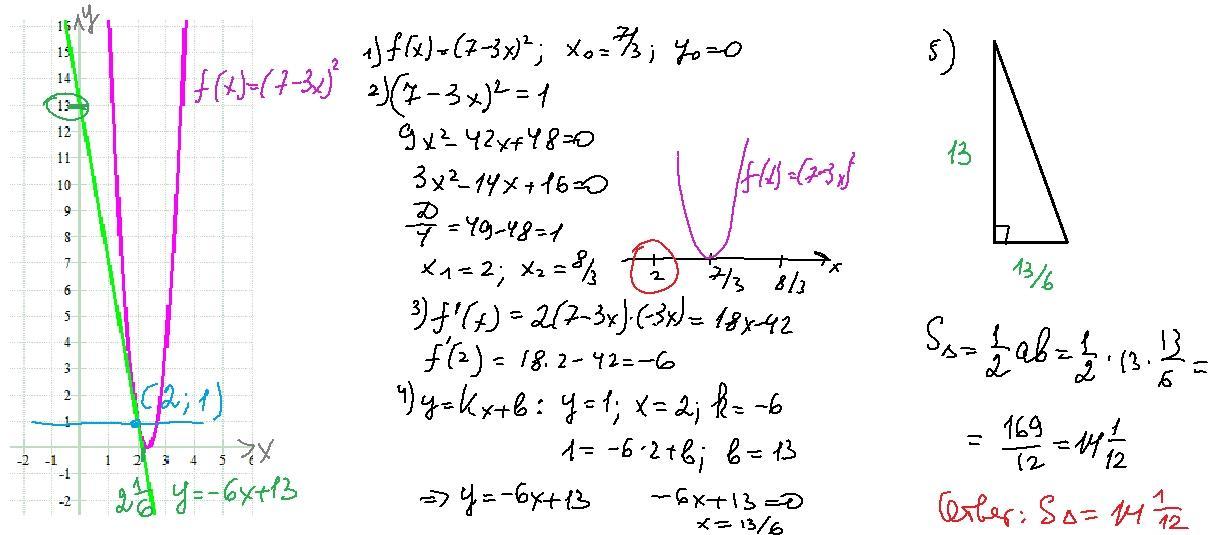 y
16
15
14
13
12
11
10
9
8
7
6
5
4
3
2
1
-2 -1 0 1 2 3 4 5 6 x
-1
-2
f(x)=(7-3x)²
(2; 1)
2 1/6 y=-6x+13
1) f(x)=(7-3x)²; x₀=7/3; y₀=0
2) (7-3x)²=1
9x²-42x+48=0
3x²-14x+16=0
D/4=49-48=1
x₁=2; x₂=8/3
f(x)=(7-3x)²
2 7/3 8/3 x
3) f'(x)=2(7-3x)·(-3x)=18x-42
f'(2)=18·2-42=-6
4) y=kx+b: y=1; x=2; k=-6
1=-6·2+b; b=13
⇒ y=-6x+13 -6x+13=0
x=13/6
5)
13
13/6
S△=1/2ab=1/2·13·13/6=
=169/12=14 1/12
Ответ: S△=14 1/12